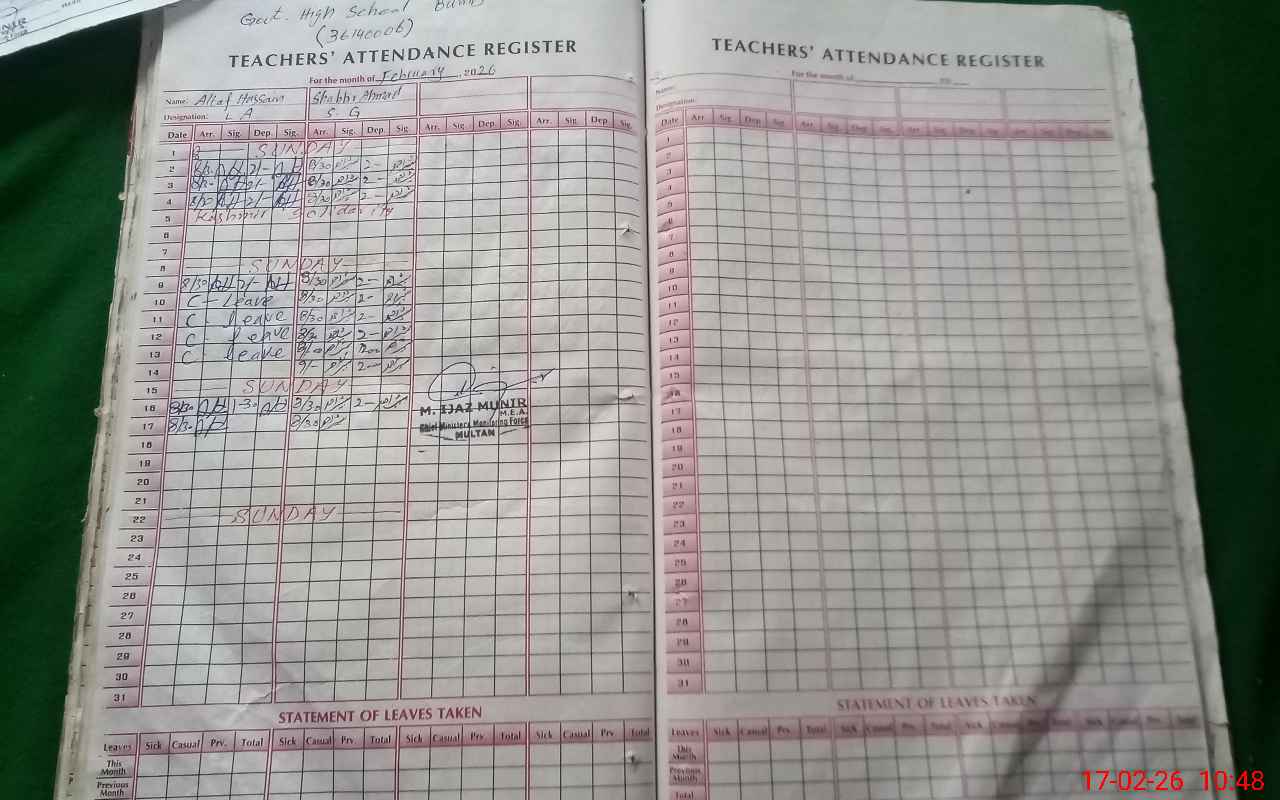 Govt. High School
(36140006)
TEACHERS' ATTENDANCE REGISTER
For the month of February 2026
Name: Altaf Hussain Shabbir Ahmad
Designation: L A S. G
Date Arr. Sig. Dep. Sig. Arr. Sig. Dep. Sig Arr. Sig. Dep. Sig. Arr. Sig. Dep Sig.
1 SUNDAY
2 8/30 2/- 8/30 2-
3 8/30 2/- 8/30 2-
4 8/30 2/- 8/30 2-
5 Kashmir Solidarity
6
7
8 SUNDAY
9 8/30 2/- 8/30 2-
10 C - Leave 8/30 2-
11 C - leave 8/30 2-
12 C - leave 8/30 2-
13 C - leave
14 9/- 2-
15 SUNDAY
16 8/30 1-30 8/30 2-
17 8/30 8/30
M. IJAZ MUNIR
M.E.A.
Chief Ministers Monitoring Force
MULTAN
18
19
20
21
22 SUNDAY
23
24
25
26
27
28
29
30
31
STATEMENT OF LEAVES TAKEN
Leaves Sick Casual Prv. Total Sick Casual Prv Total Sick Casual Prv. Total Sick Casual Prv Total
This Month
Previous Month
TEACHERS' ATTENDANCE REGISTER
For the month of
Name:
Designation:
Date Arr Sig Dep Sig Arr Sig Dep Sig Arr Sig Dep Sig Arr Sig Dep Sig
1
2
3
4
5
6
7
8
9
10
11
12
13
14
15
16
17
18
19
20
21
22
23
24
25
26
27
28
29
30
31
STATEMENT OF LEAVES TAKEN
Leaves Sick Casual Prv. Total Sick Casual Prv. Total Sick Casual Prv Total
This Month
Previous Month
Total
17-02-26 10:48